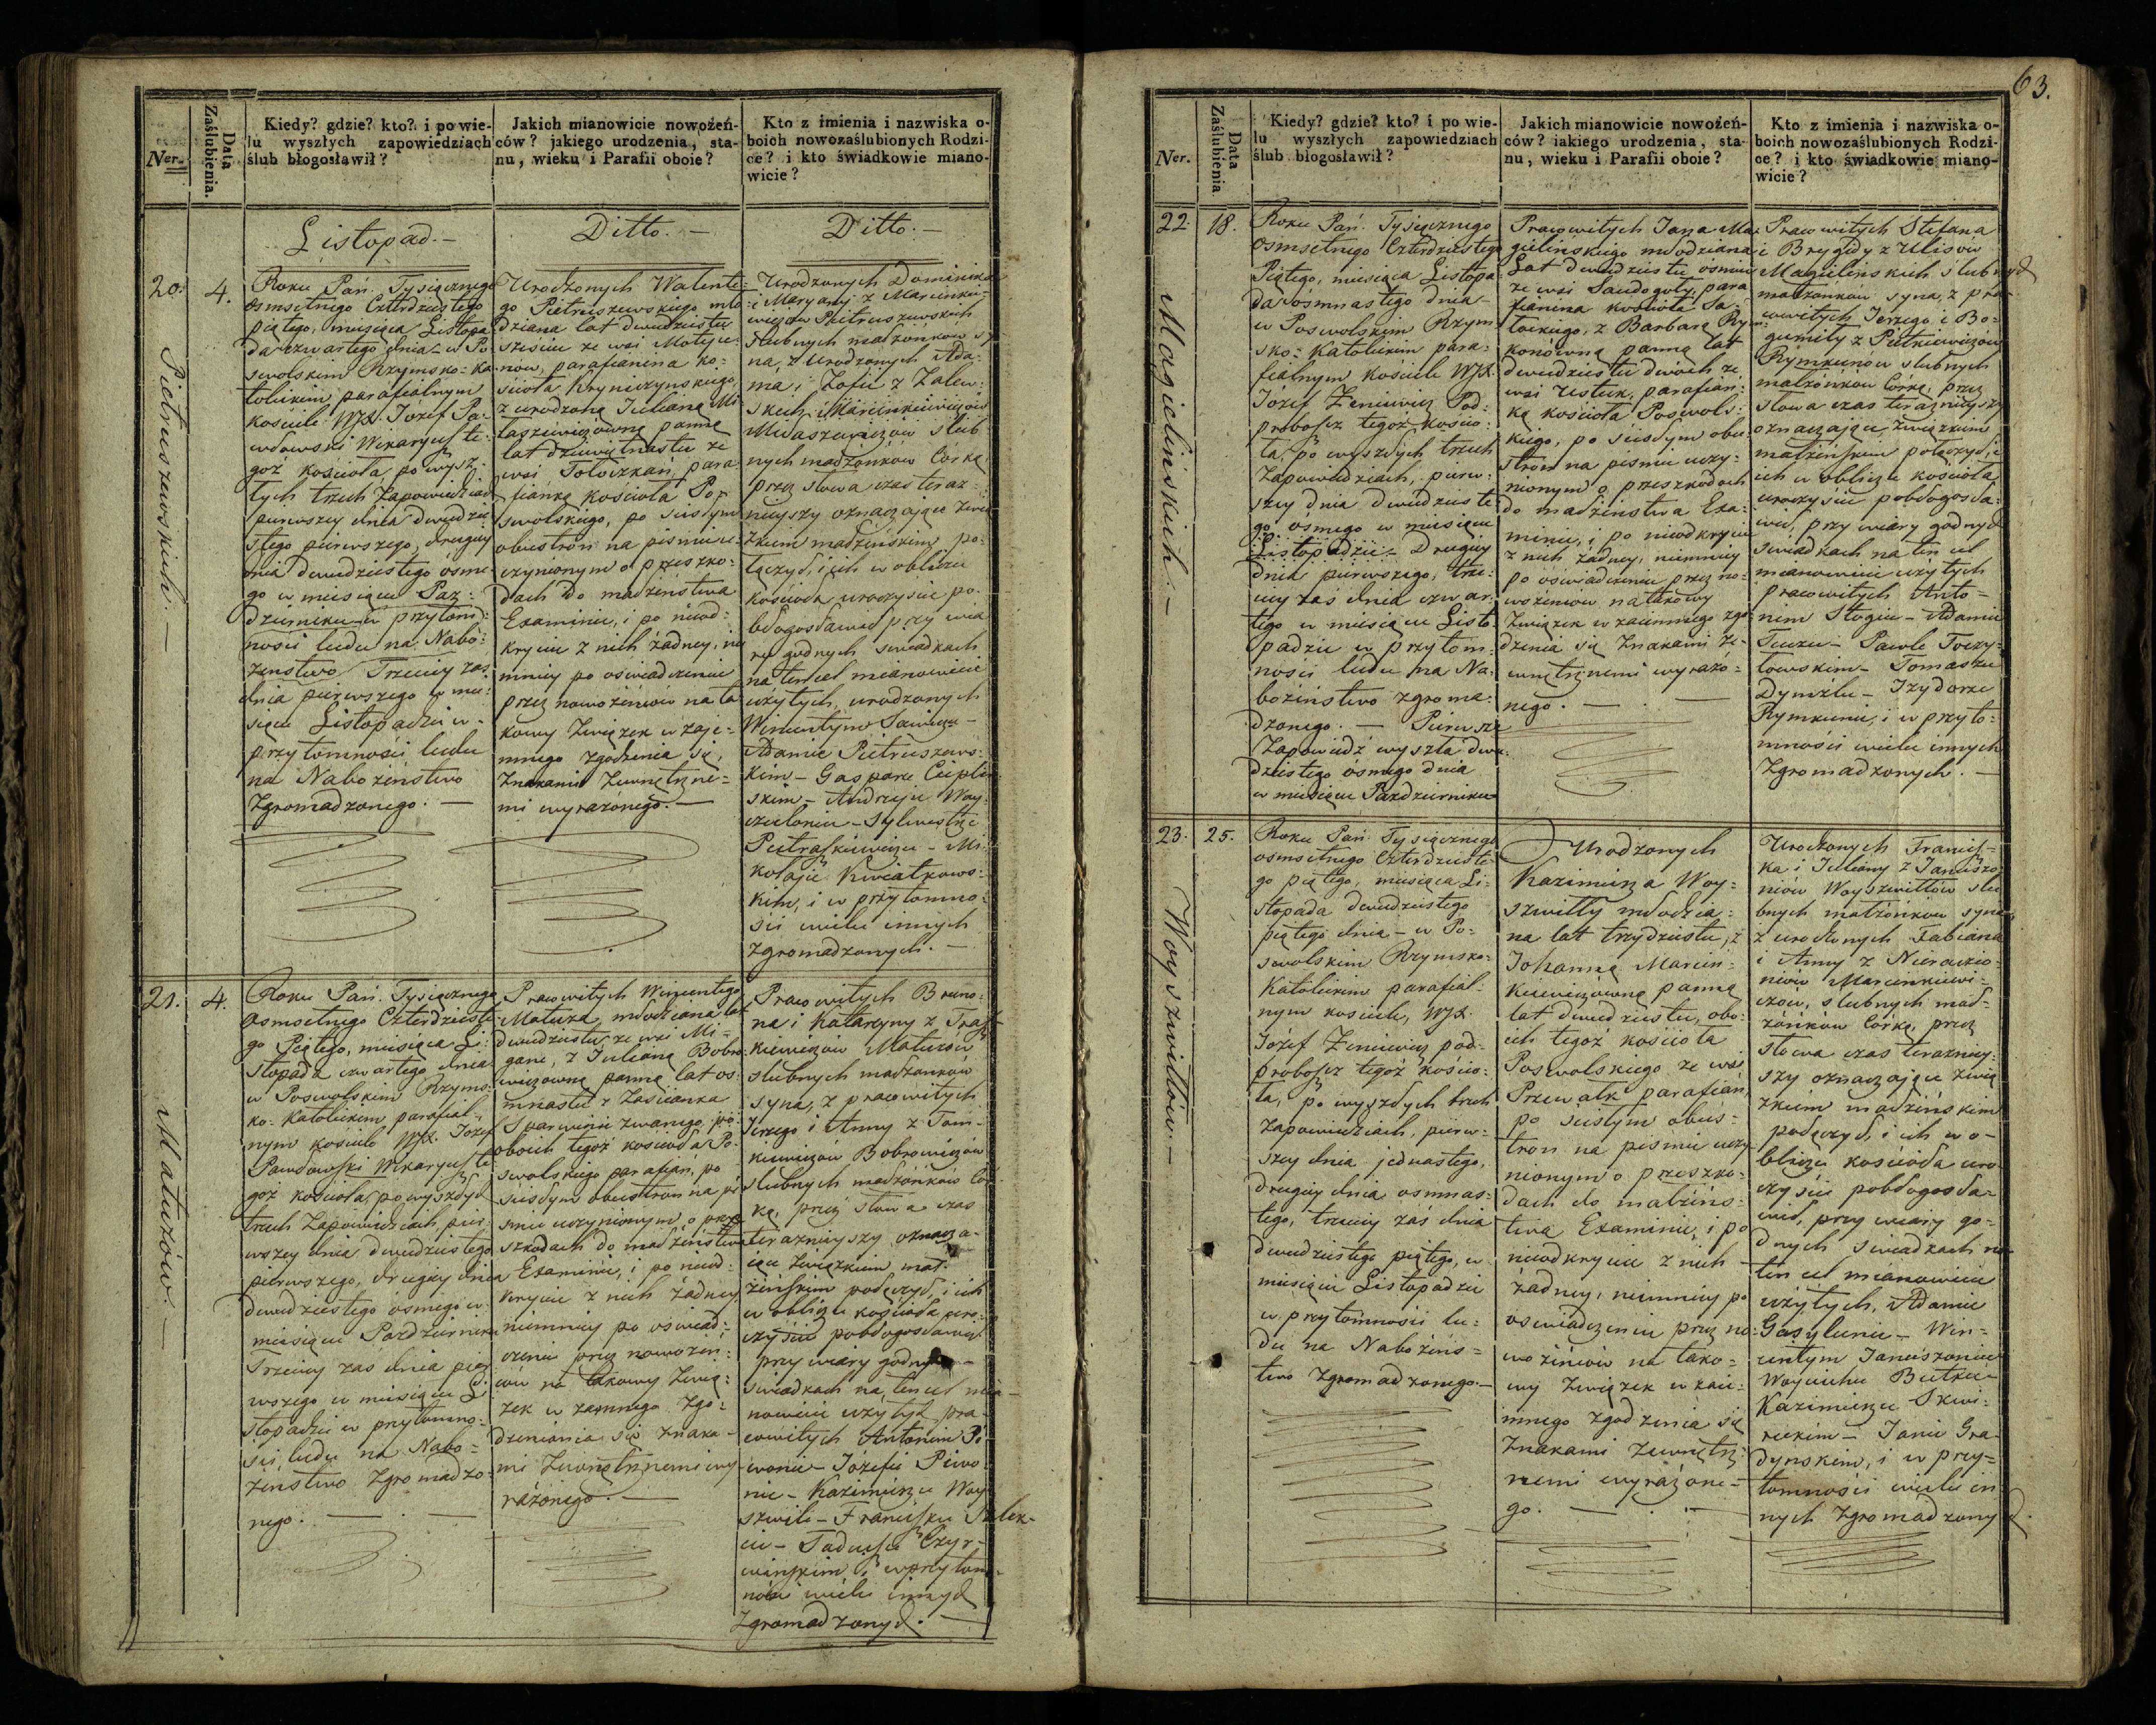 63.
Ner.
Data
Zaślubienia.
Kiedy? gdzie? kto? i po wie-
lu wyszłych zapowiedziach
ślub błogosławił?
Jakich mianowicie nowożeń-
ców? jakiego urodzenia, sta-
nu, wieku i Parafii oboie?
Kto z imienia i nazwiska o-
boich nowozaślubionych Rodzi-
ce? i kto świadkowie miano-
wicie?
Listopad.—
Ditto.—
Ditto.—
20.
4.
Pietruszewskich.—
Roku Pań. Tysiącznego
osmsetnego Czterdziestego
piątego, miesiąca Listopa
da czwartego dnia – w Po
swolskim Rzymsko-ka
tolickim parafialnym
kościele WJX. Józef Pa-
włowski Wikaryusz te-
goż kościoła po wysz-
łych trzech Zapowiedziach
pierwszey dnia dwudzie
stego pierwszego, drugiey
dnia dwudziestego osme
go w miesiącu Paz-
dzierniku w przytom-
ności ludu na Nabo-
żenstwo Trzeciey zaś
dnia pierwszego w mie-
siącu Listopadzie w
przytomności ludu
na Nabożeństwo
Zgromadzonego.—
Urodzonych Walente-
go Pietruszewskiego mło
dziana lat dwudziestu
sześciu ze wsi Motyu-
now, parafianina ko-
ścioła Krynczynskiego,
z urodzoną Julianą Mi
łaszewiczówną panną
lat dziewiętnastu ze
wsi Tołoczkań para
fianką kościoła Po-
swolskiego, po ścisłym
obustron na piśmie u-
czynionym o przeszko-
dach do małżeństwa
Examinie, i po nieod-
kryciu z nich żadney, nie
mniey po oświadczeniu
przez nowożeńców na ta
kowy Związek wzaje-
mnego zgodzenia się
Znakami Zewnętrzne-
mi wyrażonego.—
Urodzonych Dominika
i Maryanny z Marcinkie-
wiczów Pietruszewskich
ślubnych małżonków sy
na, z urodzonych Ada-
ma i Zofii z Zalew-
skich
Miłaszewiczów ślub
nych małżonków Córkę
przez słowa czas teraz-
nieyszy oznaczające Zwią
zkiem małżeńskim po-
łączył, i ich w obliczu
kościoła uroczyscie po-
błogosławił przy wia
ry godnych świadkach
na ten cel mianowicie
użytych, urodzonych
Wincentym Sawiczu –
Adamie Pietruszews-
kim – Gasparze Cieplin
skim – Andrzeju Woy-
czeloniu – Sylwestrze
Pietraszkiewiczu – Mi-
kołaju Kwiatkows-
kim, i w przytomno-
ści wielu innych
zgromadzonych.—
21.
4.
Matuzów.—
Roku Pań. Tysiącznego
Osmsetnego Czterdzieste-
go Piątego, miesiąca Li-
stopada czwartego dnia
w Poswolskim Rzyms-
ko-Katolickim parafial-
nym kościele WJX. Józef
Pawłowski Wikaryusz te
goż kościoła, po wyszłych
trzech Zapowiedziach, pier-
wszey dnia dwudziestego
pierwszego, drugiey dnia
dwudziestego ósmego w
miesiącu Pazdzierniku
Trzeciey zaś dnia pier
wszego w miesiącu Li-
stopadzie w przytomno-
ści, ludu na Nabo-
żenstwo Zgromadzo-
nego.—
Pracowitych Wincentego
Matuza, młodziana lat
dwudziestu ze wsi Mi-
gane, z Julianą Bobro
wiczówną panną lat os-
mnastu z Zaścianka
zwanego
oboich tegoż kościoła Po-
swolskiego parafian, po
ścisłym obustron na pi
śmie uczynionym o prze
szkodach do małżeństwa
Examinie, i po nieod-
kryciu z nich żadney
niemniey po oświad-
czeniu przez nowożeń-
ców na takowy Zwią-
zek wzajemnego Zgo-
dzeniania się znaka-
mi Zewnętrznemi wy
rażonego.—
Pracowitych Bruno-
na i Katarzyny z Trasz
kiewiczów Matuzów
ślubnych małżonków
syna, z pracowitych
Jerzego i Anny z Tom-
kiewiczów Bobrowiczów
ślubnych małżonków Cór-
kę, przez słowa czas
teraznieyszy oznacza-
iące Związkiem mał-
żeńskim połączył, i ich
w obliczu kościoła uro-
czyście pobłogosławił
przy wiary godnych
świadkach na, ten cel mia-
nowicie użytych pra-
cowitych Antonim Pi-
wonie – Józefie Piwo
nie – Kazimierzu Woy
szwile – Franciszku
– Tadeuszu Czyr-
winskim i w przytom-
ności wielu innych
Zgromadzonych.—
Ner.
Data
Zaślubienia.
Kiedy? gdzie? kto? i po wie-
lu wyszłych zapowiedziach
ślub błogosławił?
Jakich mianowicie nowożeń-
ców? iakiego urodzenia, sta-
nu, wieku i Parafii oboie?
Kto z imienia i nazwiska o-
boich nowozaślubionych Rodzi-
ce? i kto świadkowie miano-
wicie?
22.
18.
Magielinskich.—
Roku Pań. Tysiącznego
Osmsetnego Czterdziestego
Piątego, miesiąca Listopa-
da ósmnastego dnia
w Poswolskim Rzym-
sko-Katolickim para-
fialnym kościele WJX.
Józef Zeniewicz Pod-
proboszcz tegoż kościo-
ła, po wyszłych trzech
Zapowiedziach, pierw-
szey dnia dwudzieste
go ósmego w miesiącu
Listopadzie – Drugiey
dnia pierwszego, trze-
ciey zaś dnia czwar-
tego w miesiącu Listo-
padzie w przytom-
ności ludu na Na-
bożeństwo zgroma-
dzonego.— Pierwsza
Zapowiedź wyszła dwu-
dziestego ósmego dnia
w miesiącu Pazdzierniku
Pracowitych Jana Ma-
gielinskiego młodziana
Lat dwudziestu osmiu
ze wsi Saudogoły, para
fianina kościoła Sa-
łockiego, z Barbarą Rym-
konówną panną lat
dwudziestu dwóch ze
wsi Ustuk, parafian-
ką kościoła Poswols-
kiego, po ścisłym obu-
stron na piśmie uczy-
nionym o przeszkodach
do małżeństwa Exa-
minie, i po nieodkryciu
z nich żadney, niemniey
po oświadczeniu przez no-
wożeńców na takowy
Związek wzaiemnego zgo-
dzenia się Znakami Ze-
wnętrznemi wyrażo-
nego.—
Pracowitych Stefana
i Brygidy z Ulisów
Magielinskich ślubnych
małżonków syna, z pra-
cowitych Jerzego i Bo-
gumiły z Putkiewiczów
Rymkunów ślubnych
małżonków Córkę, przez
słowa czas teraznieyszy
oznaczające Związkiem
małżeńskim połączył, i
ich w obliczu kościoła
uroczyście pobłogosła-
wił, przy wiary godnych
świadkach na ten cel
mianowicie użytych
pracowitych Anto-
nim Stogiu – Adamie
– Pawle Toczy-
łowskim – Tomaszu
Dymżlu – Izydorze
Rymkunie, i w przyto-
mności wielu innych
Zgromadzonych.—
23.
25.
Woyszwiłłów.—
Roku Pań. Tysiącznego
osmsetnego Czterdzieste-
go piątego, miesiąca Li-
stopada dwudziestego
piątego dnia – w Po-
swolskim Rzymsko-
Katolickim parafial-
nym kościele, WJX.
Józef Zeniewicz pod-
proboszcz tegoż kościo-
ła, po wyszłych trzech
Zapowiedziach, pierw-
szey dnia jednastego,
drugiey dnia osmnas-
tego, trzeciey zaś dnia
dwudziestego piątego, w
miesiącu Listopadzie
w przytomności lu-
du na Nabożeńs-
two Zgromadzonego.—
Urodzonych
Kazimierza Woy-
szwiłły młodzia-
na lat trzydziestu, z
Johanną Marcin-
kiewiczówną panną
lat dwudziestu, obo-
ich tegoż kościoła
Poswolskiego ze wsi
Przewałk parafian,
po ścisłym obus-
tron na piśmie uczy
nionym o przeszko-
dach do małżeńs-
twa Examinie, i po
nieodkryciu z nich
żadney, niemniey po
oświadczeniu przez no-
wożeńców na tako-
wy Związek wzaie-
mnego zgodzenia się
Znakami Zewnętrz-
nemi wyrażone-
go.—
Urodzonych Francisz-
ka i Juliany z Januszo-
niów Woyszwiłłów ślu
bnych małżonków syna
z urodzonych Fabiana
i Anny z
Marcinkiewi-
czów, ślubnych mał-
żónków Córkę, przez
słowa czas teraźniey-
szy oznaczające Zwią
zkiem małżeńskim
połączył, i ich w o-
bliczu kościoła uro
czyście pobłogosła-
wił, przy wiary go-
dnych świadkach na
ten cel mianowicie
użytych, Adamie
Gasylunie – Win-
centym Januszoniu
Woyciechu Butku –
Kazimierzu Skwi-
reckim – Janie Gra-
dynskim, i w przy-
tomności wielu in
nych Zgromadzonych.